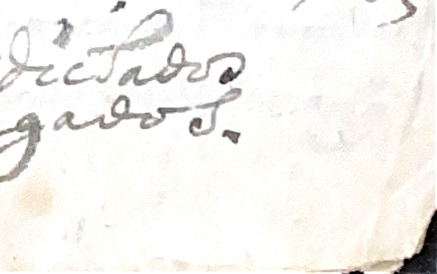 dictados
gados.